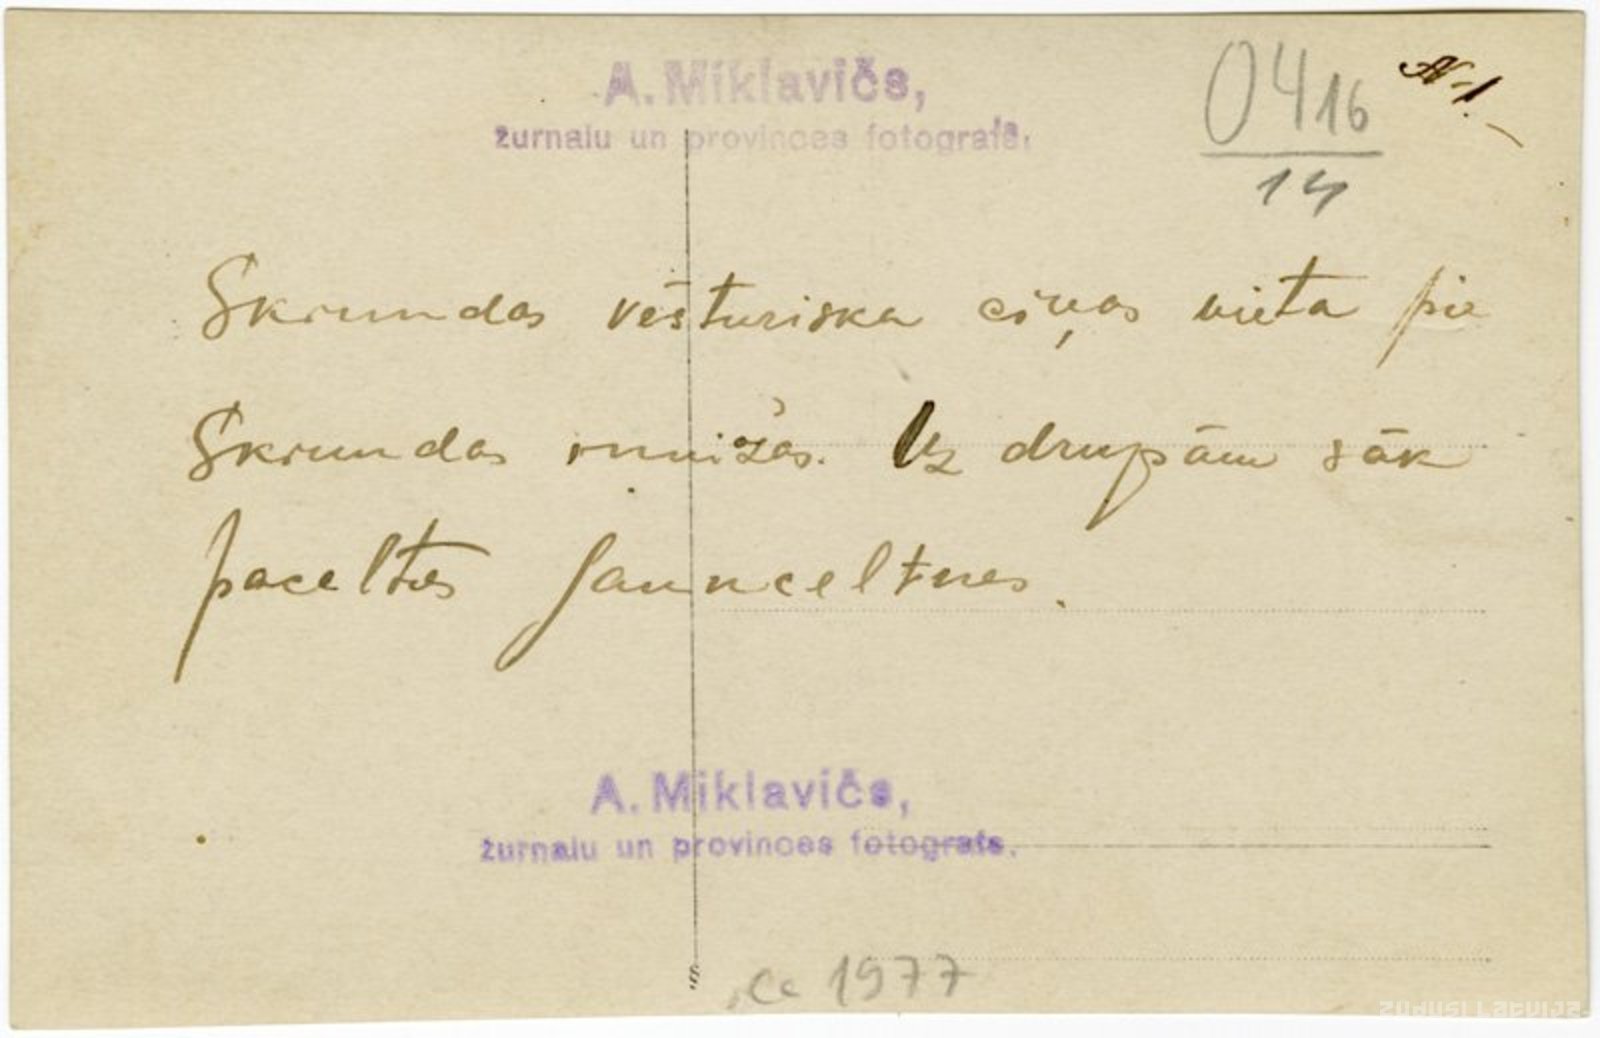 A. Miklavičs,
žurnalu un provinces fotografs.
0416
14
N 1.
Skrundas vēsturiska cīņas vieta pie
Skrundas muižas. Uz drupām sāk
pacelties jaunceltnes.
A. Miklavičs,
žurnalu un provinces fotografs.
1977
zudusi Latvija